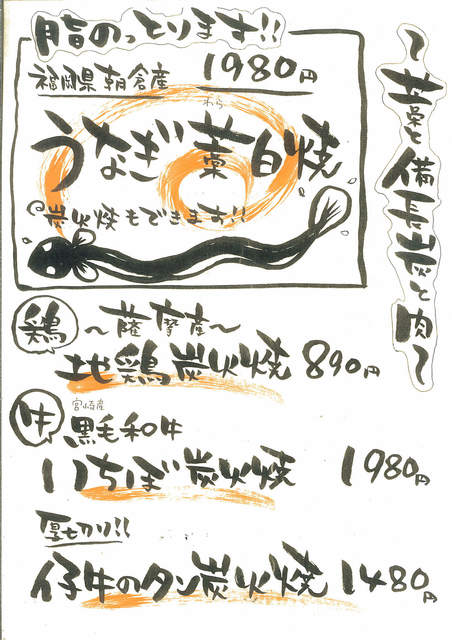 〜藁と備長炭と肉〜
脂のっとります!!
福岡県朝倉産 1980円
わら
うなぎ藁白焼
炭火焼もできます!!
鶏 〜薩摩産〜
地鶏炭火焼 890円
宮崎産
牛 黒毛和牛
いちぼ炭火焼 1980円
厚切り!!
仔牛のタン炭火焼 1480円